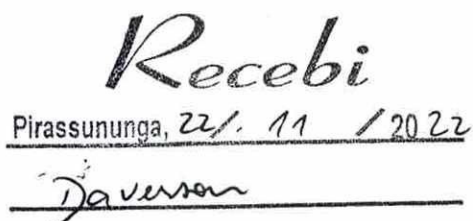 Recebi
Pirassununga, 22/. 11 / 2022
Daverson